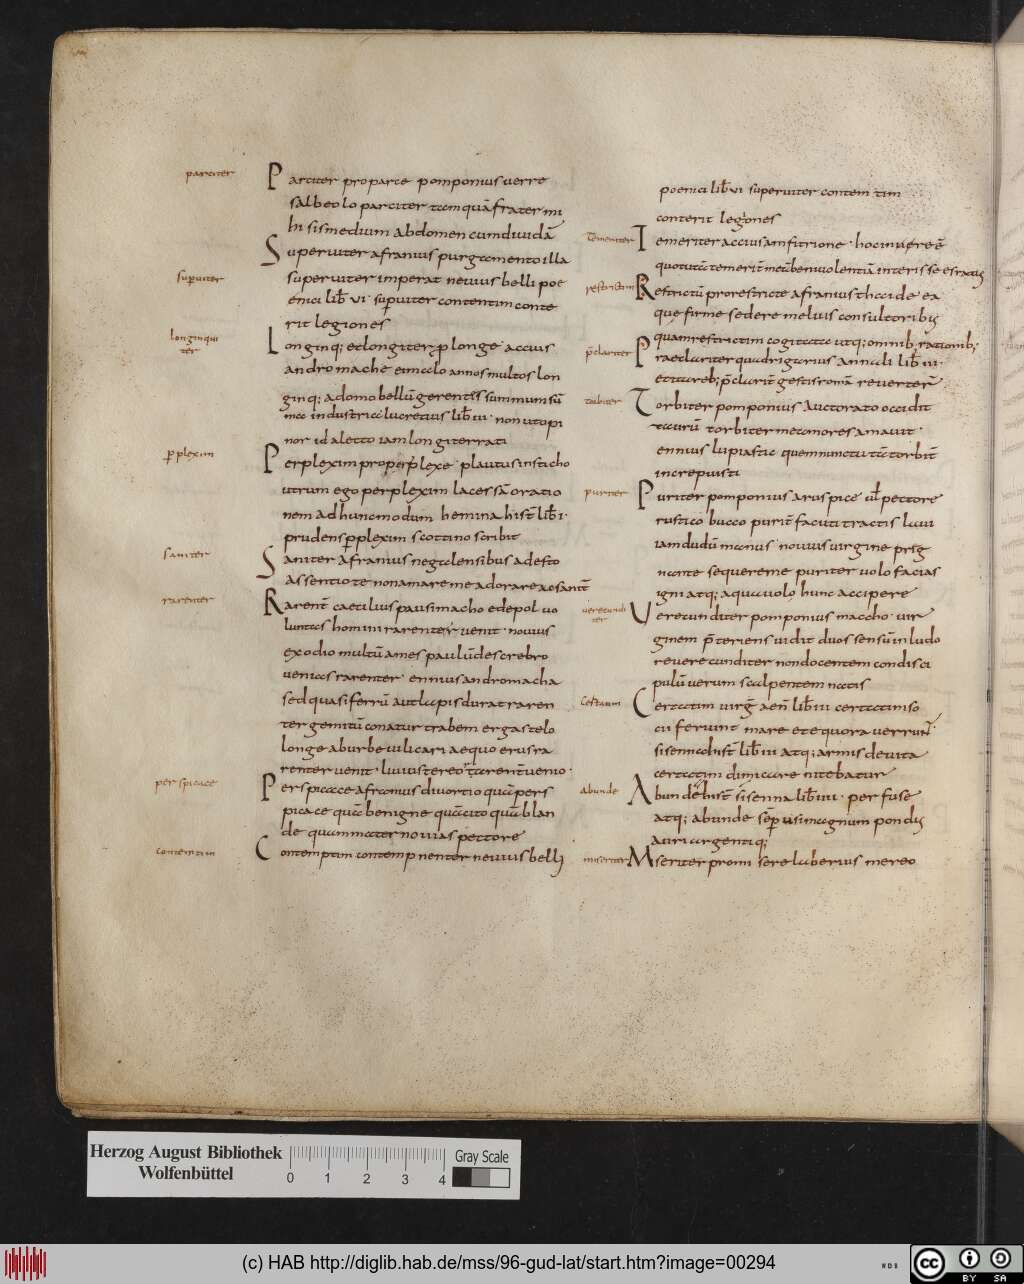 parciter
Parciter pro parce pomponius uerre
salbeto lo parciter tamquā frater mi
hi sis medium abdomen cum diuidā
Superuiter afranius purgamento illa
superuiter
superuiter imperat neuius belli poe
enici lib̄ vi· supuiter contentim conte
rit legiones
longinqui
ter
Longinq; et longiter p longe accius
andromache eunicolo annos multos lon
ginq; a domo bellū gerentes summum sū
ma industria lucretius lib̄ iii· non ut opi
nor id a leto iam longiter rati
pplexim
Perplexim pro perplexe· plautus in sticho
utrum ego perplexim lacessā oratio
nem ad hunc modum hemina hist̄ lib̄ i·
prudens pplexim scottino scribit
saniter
Saniter afranius negolensibus adesto
assentio te non amare me adorare ac sant̄
rarenter
Rarent̄ caecilius pausimacho edepol uo
luntas homini rarenter uenit· nouius
exodio multū ames paulū des crebro
uenias rarenter· ennius andromacha
sed quasi ferrū aut lapis durat raren
ter gemitū conatur trabem ergastelo
longe ab urbe uilicari aequo erus ra
renter uenit· liuius tereo t̄ rarent̄ uenio·
perspicace
Perspicace afranius diuortio quā pers
picace quā benigne quā cito quā blan
de quam mater nouias pectore
contemtim
Contemptim contempnenter neuius belli
poenici lib̄ vi superuiter contemtim
conterit legiones
Temeriter
Temeriter accius amfitrione· hoc in uere ē
restrictim
Restrictū pro restricte afranius thaide ea
que firme sedere melius consultoribus
quam restrictim cogitata utq; omnib; rationib;
p̄clariter
Praeclariter quadrigarius annali lib̄ iii·
et ita reb; p̄clarit̄ gestis romā reuerter̄
torbiter
Torbiter pomponius auctorato occidit
taurū torbiter me amores amauit·
ennius lupiastic quem nunc tu tā torbit̄
increpuisti
puriter
Puriter pomponius aruspice ul̄ pectore
rustico bucco purit̄ facuti tractis laui
iam dudū manus· nouius uirgine preg
nante sequere me puriter uolo facias
igni atq; aqua uolo hunc accipere
uerecundi
ter
Verecunditer pomponius maccho· uir
ginem p̄teriens uidit duos sensū in ludo
reuerecunditer non docentem condisci
pulū uerum scalpentem natis
Certatim uirḡ aen̄ lib̄ iii certatim so
cii feriunt mare et equora uerrunt·
sisenna hist̄ lib̄ iii atq; armis de uita
certatim dimicare nitebatur
abunde
Abunde hist̄ sisenna lib̄ iiii· per fuse
atq; abunde semp usi magnum pondus
auri argentiq;
miseriter
Miseriter promi sere laberius mereo
Herzog August Bibliothek
Wolfenbüttel
0 1 2 3 4
Gray Scale
(c) HAB http://diglib.hab.de/mss/96-gud-lat/start.htm?image=00294
WDB
cc BY SA